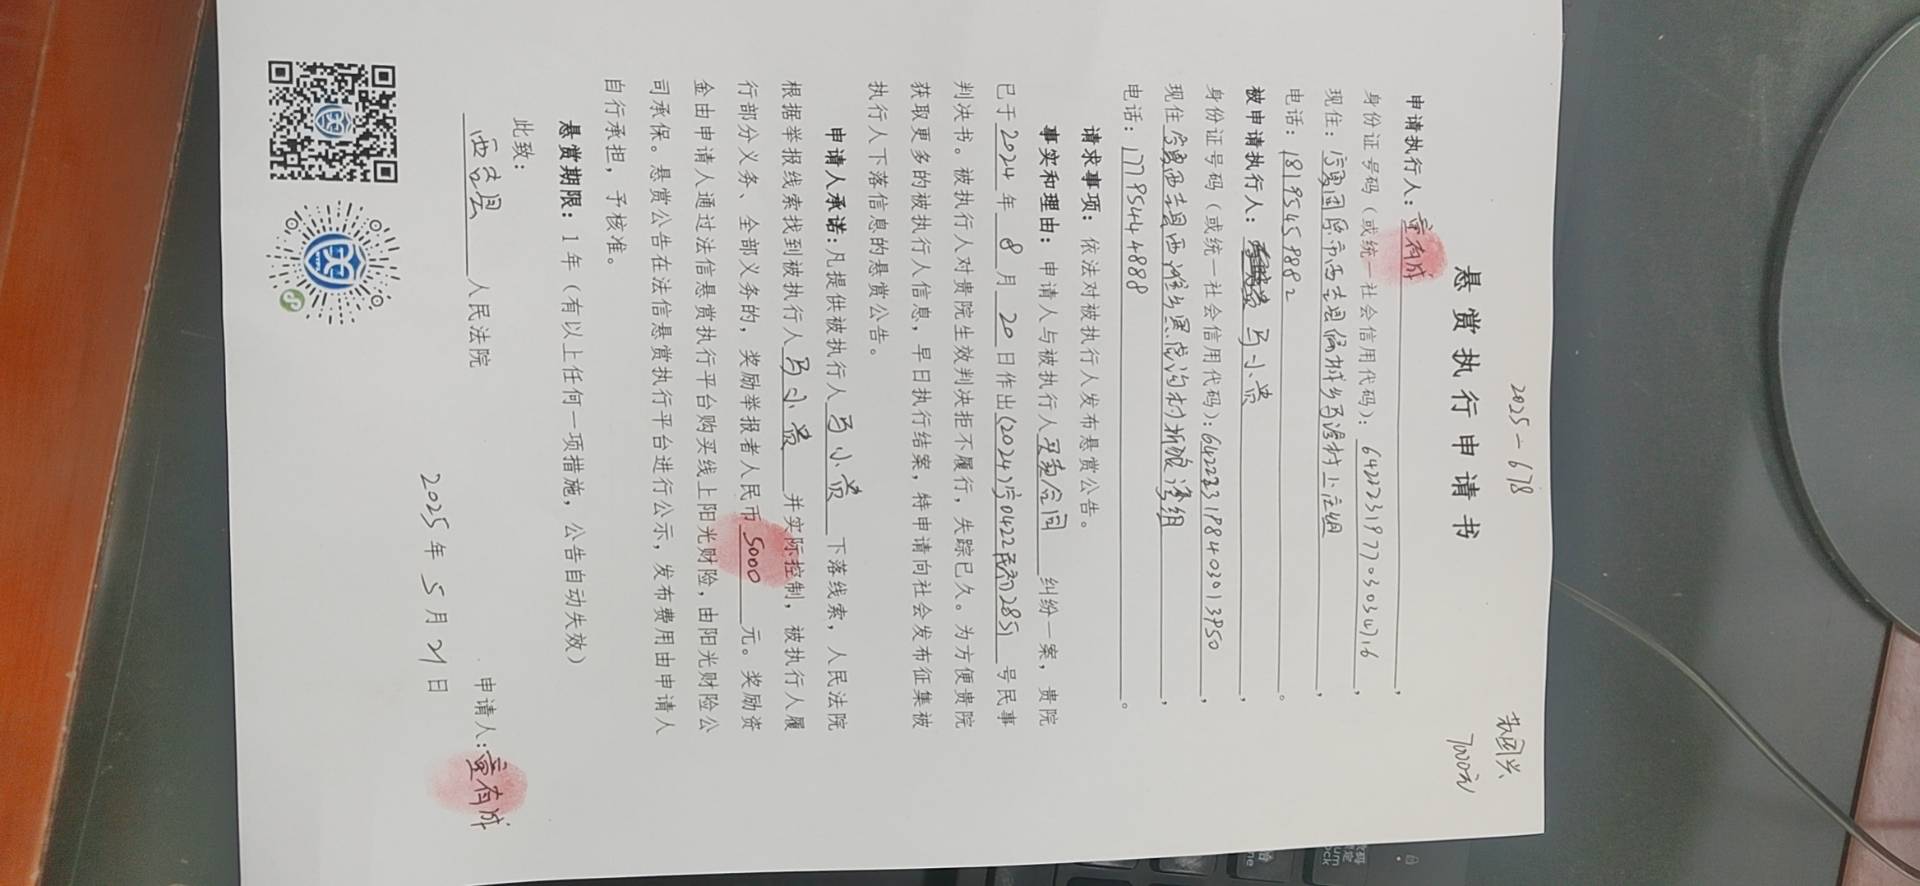 2025-678
苏国兴
7000元
悬赏执行申请书
申请执行人：童有成，
身份证号码（或统一社会信用代码）：642223197703034716，
现住：宁夏固原市西吉县偏城乡，
电话：18195458882。
被申请执行人：马小贵，
身份证号码（或统一社会信用代码）：642223198403013950，
现住宁夏西吉县西滩乡黑虎沟村组，
电话：17795444888。
请求事项：依法对被执行人发布悬赏公告。
事实和理由：申请人与被执行人买卖合同纠纷一案，贵院
已于2024年8月20日作出(2024)宁0422民初2851号民事
判决书。被执行人对贵院生效判决拒不履行，失踪已久。为方便贵院
获取更多的被执行人信息，早日执行结案，特申请向社会发布征集被
执行人下落信息的悬赏公告。
申请人承诺：凡提供被执行人马小贵下落线索，人民法院
根据举报线索找到被执行人马小贵并实际控制，被执行人履
行部分义务、全部义务的，奖励举报者人民币5000元。奖励资
金由申请人通过法信悬赏执行平台购买线上阳光财险，由阳光财险公
司承保。悬赏公告在法信悬赏执行平台进行公示，发布费用由申请人
自行承担，予核准。
悬赏期限：1年（有以上任何一项措施，公告自动失效）
此致：
西吉县人民法院
申请人：童有成
2025年5月21日